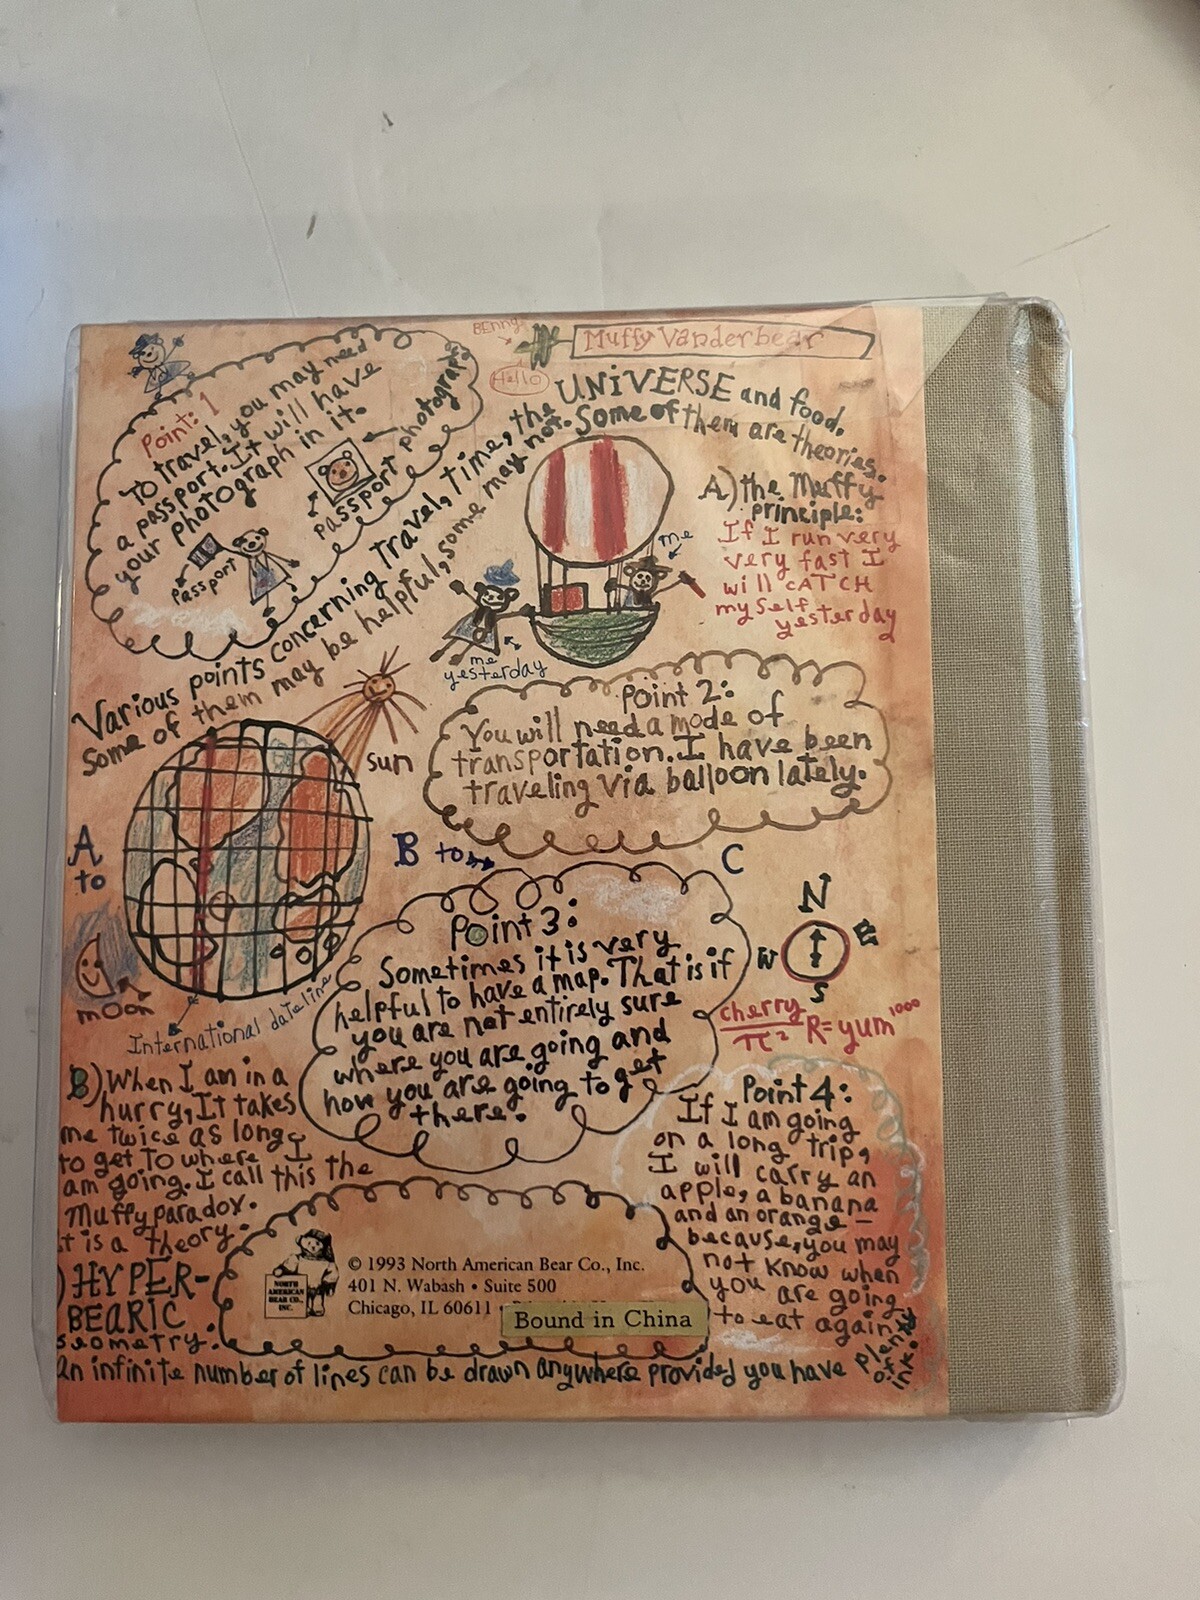 BEnny
Hello
Muffy Vanderbear
Various points concerning travel, time, the UNIVERSE and food.
Some of them may be helpful, some may not. Some of them are theories.
Point: 1
To travel, you may need
a passport. It will have
your photograph in it.
passport photograph
passport
A) the Muffy
principle:
If I run very
very fast I
will CATCH
myself
yesterday
me
me
yesterday
Point 2:
You will need a mode of
transportation. I have been
traveling via balloon lately.
sun
A
to
B to
C
moon
International dateline
Point 3:
Sometimes it is very
helpful to have a map. That is if
you are not entirely sure
where you are going and
how you are going to get
there.
N
W
E
S
cherry
πr² R=yum¹⁰⁰⁰
B) When I am in a
hurry, It takes
me twice as long
to get to where I
am going. I call this the
Muffy paradox.
t is a theory.
) HYPER-
BEARIC
Geometry:
an infinite number of lines can be drawn anywhere provided you have plenty
of ink.
Point 4:
If I am going
on a long trip,
I will carry an
apple, a banana
and an orange—
because, you may
not know when
you are going
to eat again.
NORTH
AMERICAN
BEAR CO.,
INC.
© 1993 North American Bear Co., Inc.
401 N. Wabash • Suite 500
Chicago, IL 60611 •
Bound in China